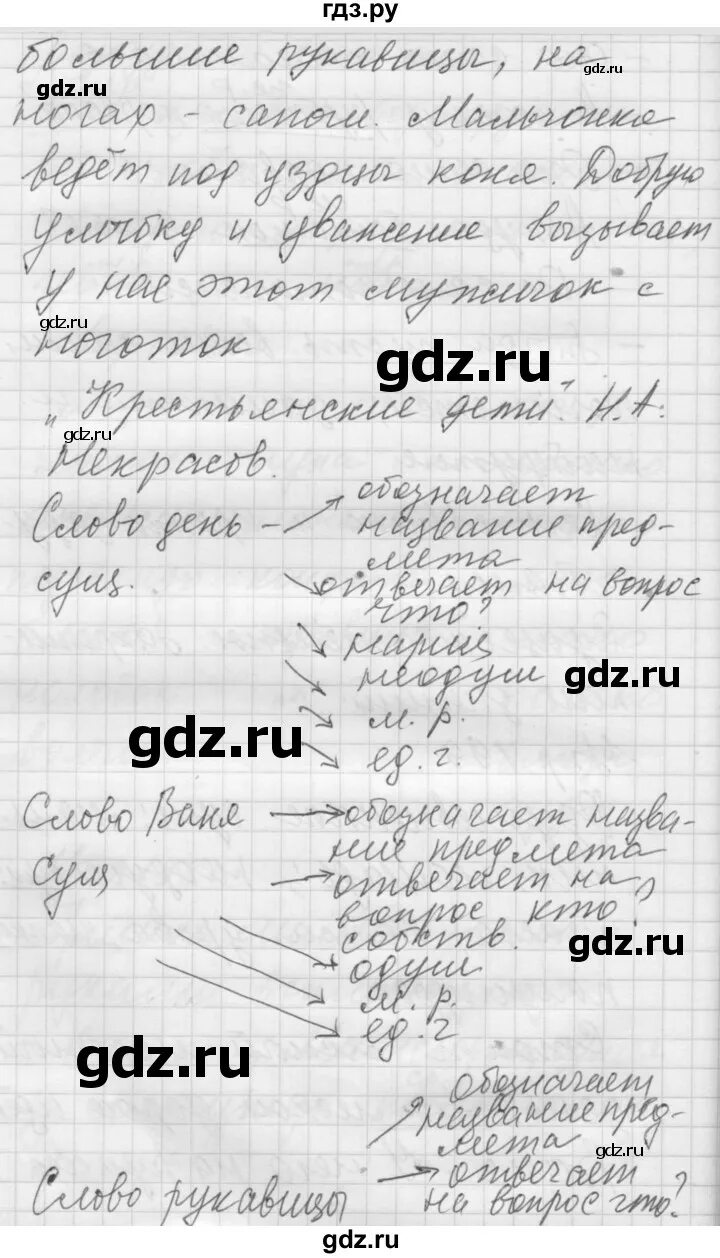 гдз.ру
большие рукавицы, на
gdz.ru
gdz.ru
ногах - сапоги. Мальчонка
ведёт под уздцы коня. Добрую
улыбку и уважение вызывает
у нас этот мужичок с
gdz.ru
ноготок
gdz.ru
„Крестьянские дети". Н.А.
gdz.ru
Некрасов.
обозначает
Слово день - название пред-
мета
сущ. отвечает на вопрос
что?
нариц
неодуш
gdz.ru
м. р.
gdz.ru
ед. г.
Слово Ваня обозначает назва-
ние предмета
Сущ отвечает на
вопрос кто?
собств.
gdz.ru
одуш
м. р.
ед. г
gdz.ru
обозначает
название пред-
мета
gdz.ru
отвечает
Слово рукавицы на вопрос что?
gdz.ru